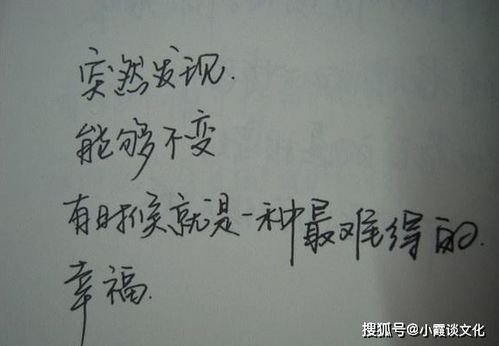 突然发现.
能够不变
有时候就是一种最难得的.
幸福.
搜狐号@小霞谈文化